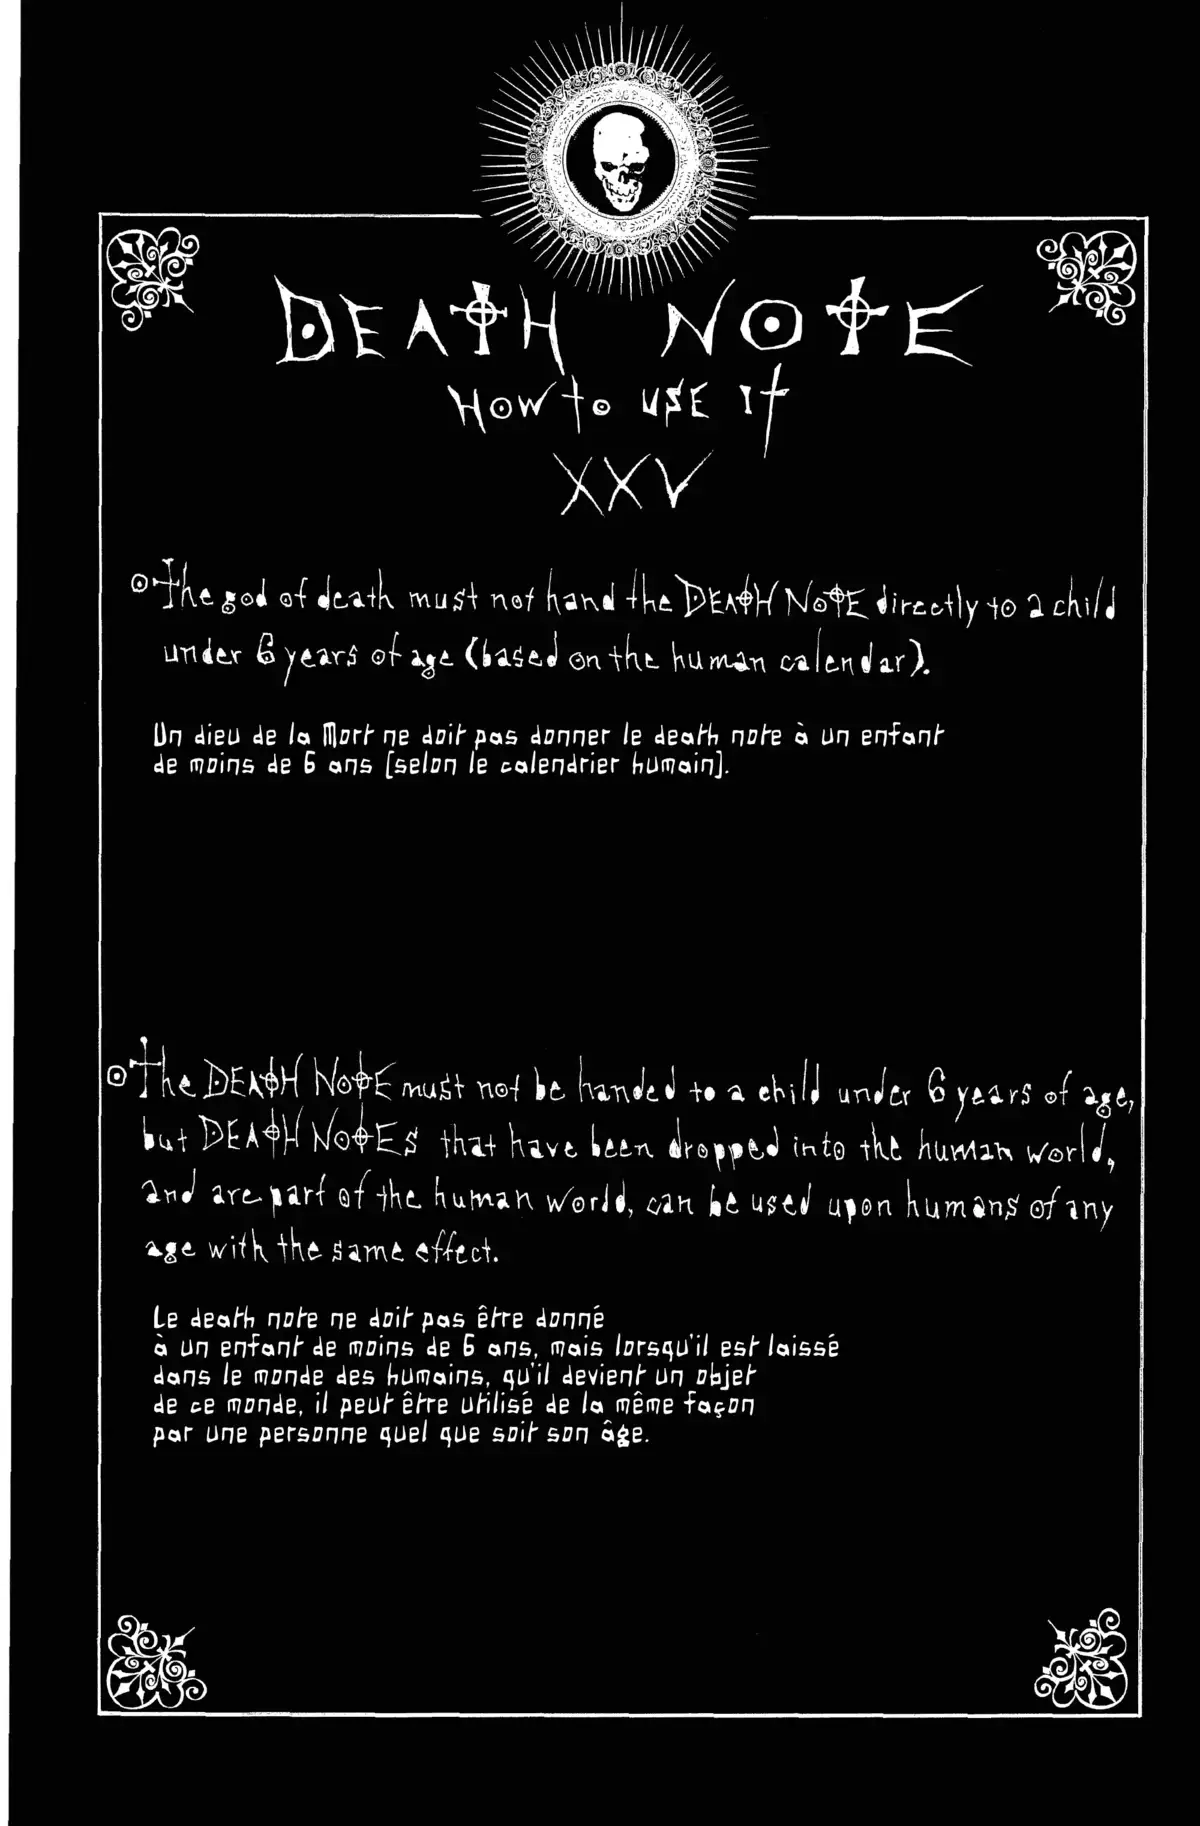 DEATH NOTE
HOW to USE It
XXV
The god of death must not hand the DEATH NOTE directly to a child
under 6 years of age (based on the human calendar).
Un dieu de la Mort ne doit pas donner le death note à un enfant
de moins de 6 ans [selon le calendrier humain].
The DEATH NOTE must not be handed to a child under 6 years of age,
but DEATH NOTES that have been dropped into the human world,
and are part of the human world, can be used upon humans of any
age with the same effect.
Le death note ne doit pas être donné
à un enfant de moins de 6 ans, mais lorsqu'il est laissé
dans le monde des humains, qu'il devient un objet
de ce monde, il peut être utilisé de la même façon
par une personne quel que soit son âge.